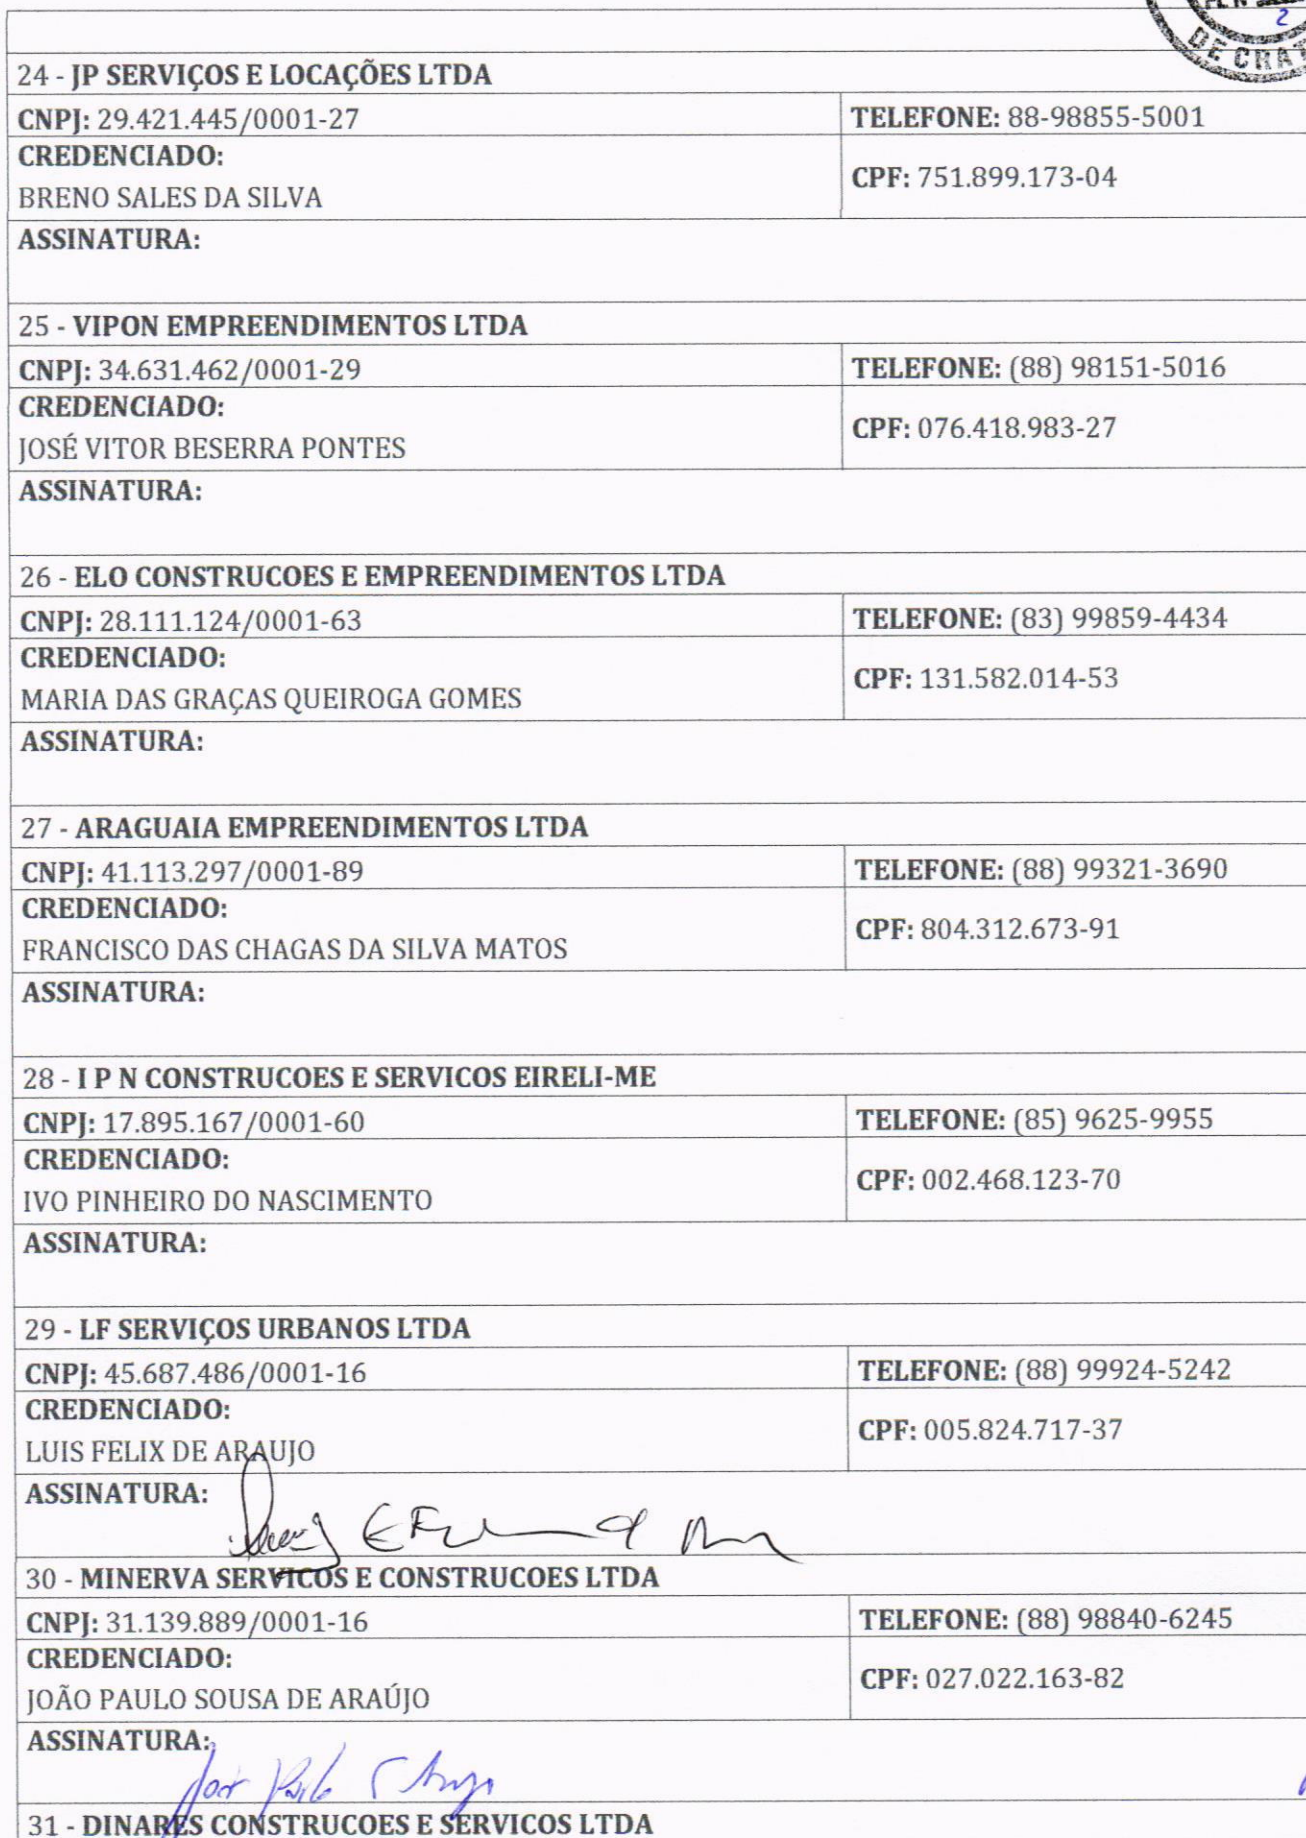 DE CRA
24 - JP SERVIÇOS E LOCAÇÕES LTDA
CNPJ: 29.421.445/0001-27 TELEFONE: 88-98855-5001
CREDENCIADO:
BRENO SALES DA SILVA CPF: 751.899.173-04
ASSINATURA:
25 - VIPON EMPREENDIMENTOS LTDA
CNPJ: 34.631.462/0001-29 TELEFONE: (88) 98151-5016
CREDENCIADO:
JOSÉ VITOR BESERRA PONTES CPF: 076.418.983-27
ASSINATURA:
26 - ELO CONSTRUCOES E EMPREENDIMENTOS LTDA
CNPJ: 28.111.124/0001-63 TELEFONE: (83) 99859-4434
CREDENCIADO:
MARIA DAS GRAÇAS QUEIROGA GOMES CPF: 131.582.014-53
ASSINATURA:
27 - ARAGUAIA EMPREENDIMENTOS LTDA
CNPJ: 41.113.297/0001-89 TELEFONE: (88) 99321-3690
CREDENCIADO:
FRANCISCO DAS CHAGAS DA SILVA MATOS CPF: 804.312.673-91
ASSINATURA:
28 - I P N CONSTRUCOES E SERVICOS EIRELI-ME
CNPJ: 17.895.167/0001-60 TELEFONE: (85) 9625-9955
CREDENCIADO:
IVO PINHEIRO DO NASCIMENTO CPF: 002.468.123-70
ASSINATURA:
29 - LF SERVIÇOS URBANOS LTDA
CNPJ: 45.687.486/0001-16 TELEFONE: (88) 99924-5242
CREDENCIADO:
LUIS FELIX DE ARAUJO CPF: 005.824.717-37
ASSINATURA:
30 - MINERVA SERVICOS E CONSTRUCOES LTDA
CNPJ: 31.139.889/0001-16 TELEFONE: (88) 98840-6245
CREDENCIADO:
JOÃO PAULO SOUSA DE ARAÚJO CPF: 027.022.163-82
ASSINATURA:
31 - DINARES CONSTRUCOES E SERVICOS LTDA